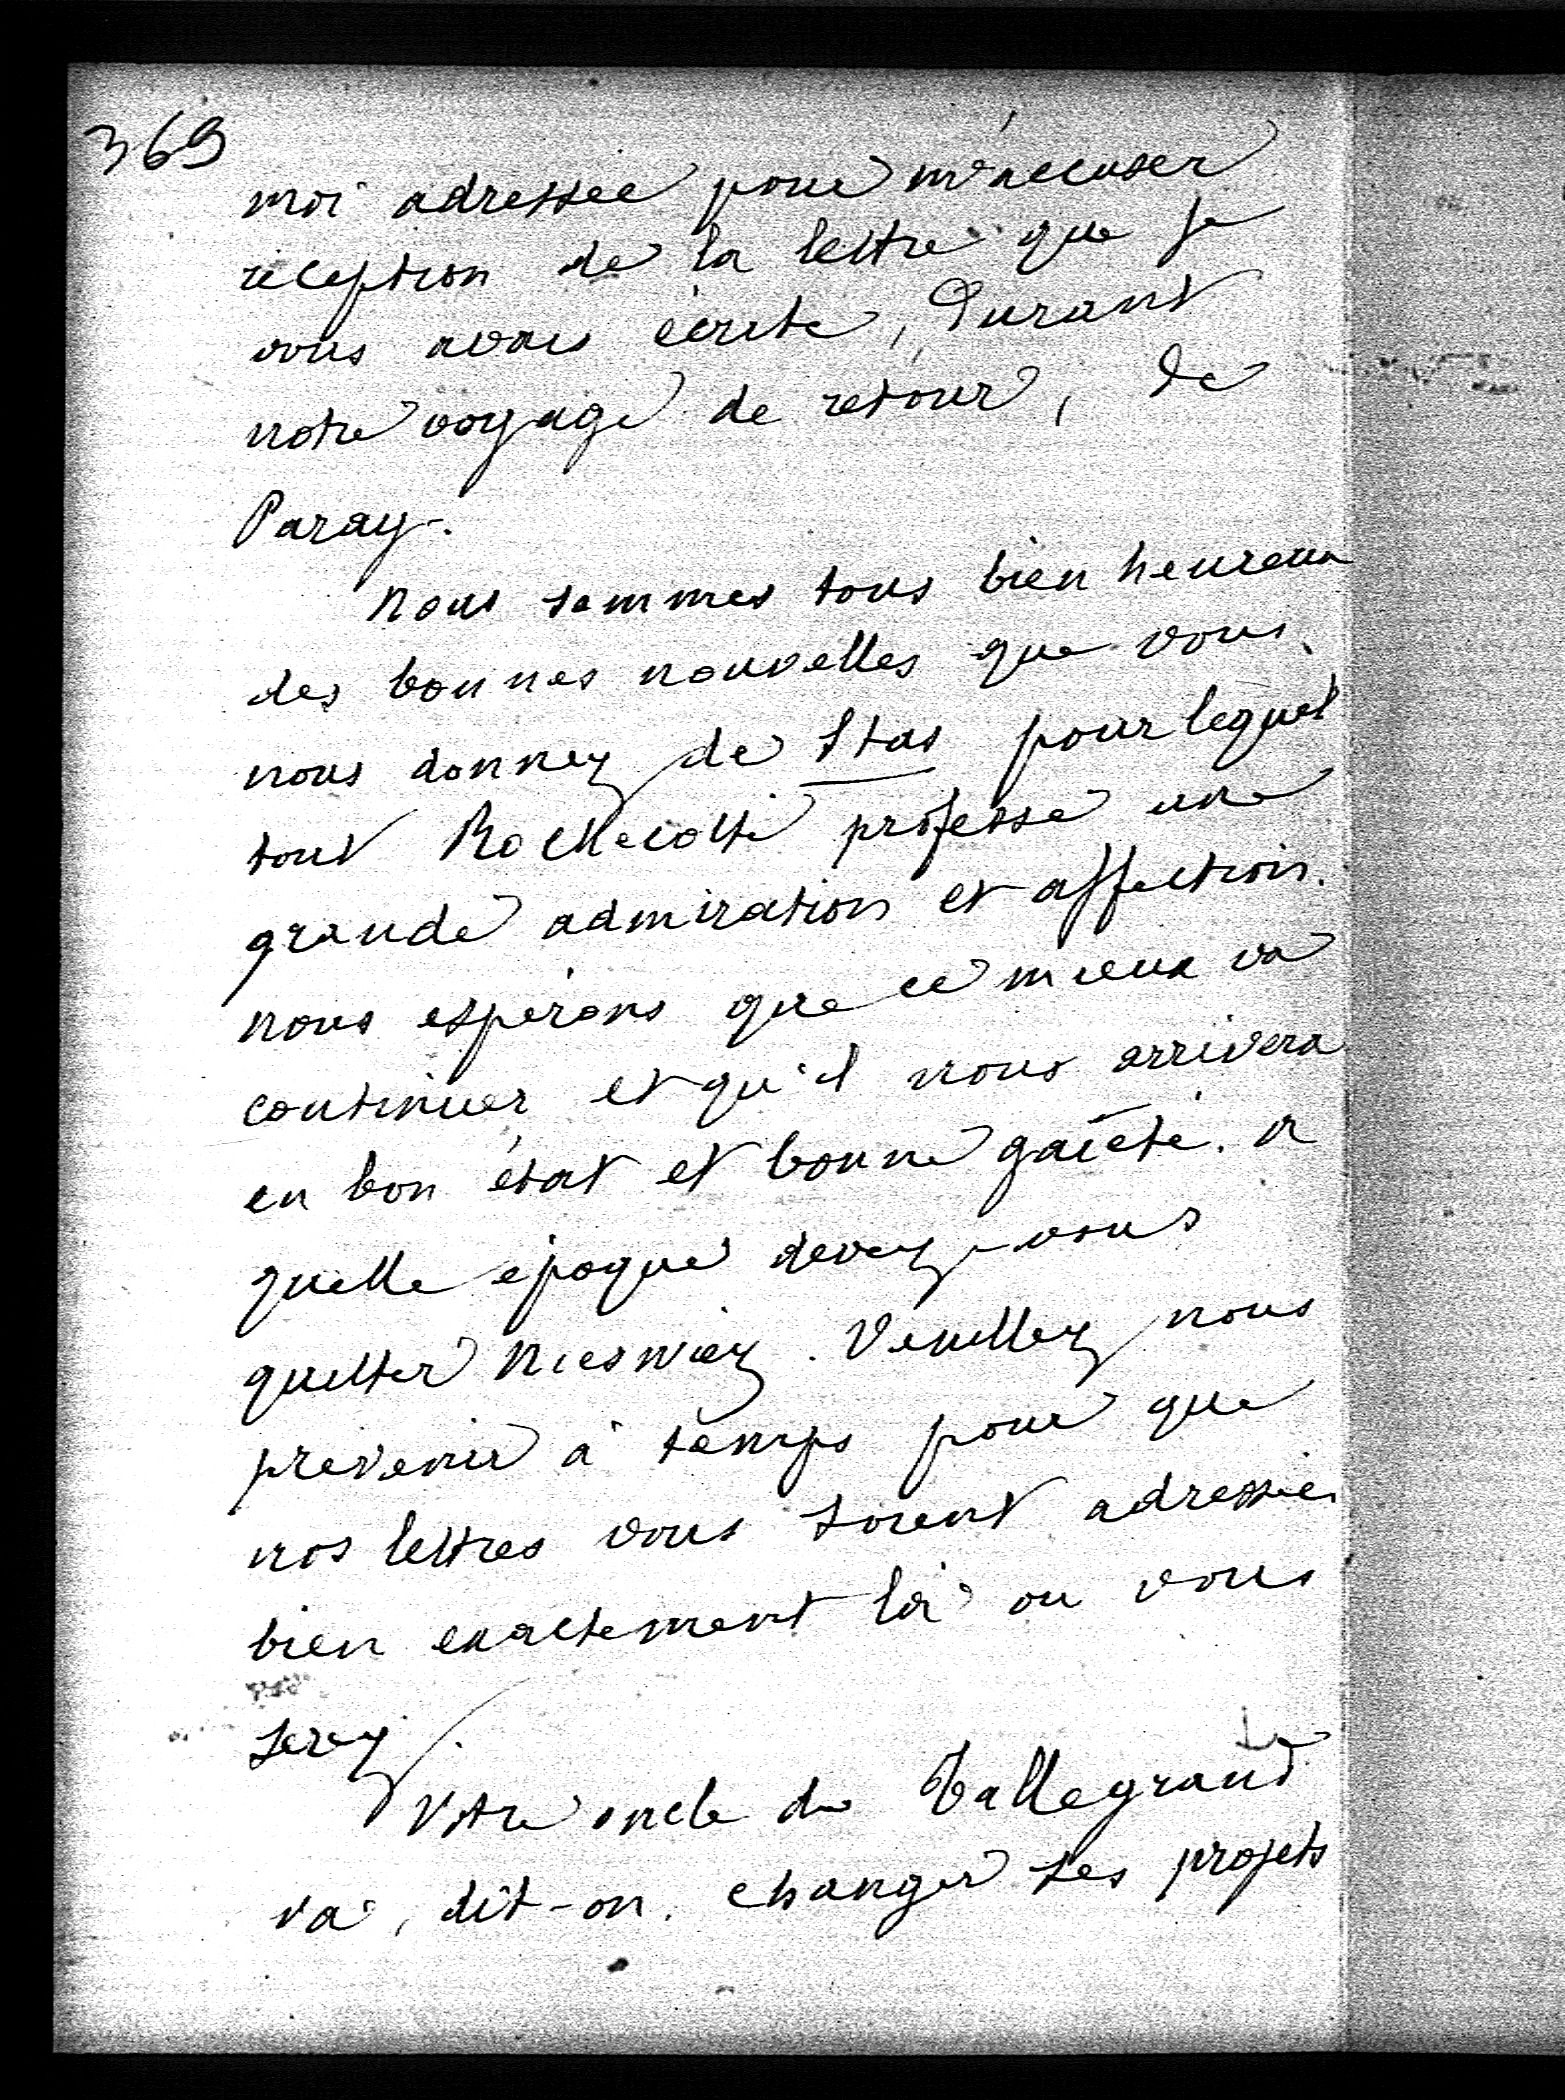 369
moi adressée pour m'accuser
réception de la lettre que je
vous avais écrite, durant
notre voyage de retour, de
Paray.
Nous sommes tous bien heureux
des bonnes nouvelles que vous
nous donnez de Stas pour lequel
tout Rochecotte professe une
grande admiration et affection.
nous espérons que ce mieux va
continuer et qu'il nous arrivera
en bon état et bonne gaîeté. A
quelle époque devez-vous
quitter Nieswiez. Veuillez nous
prévenir à temps pour que
nos lettres vous soient adressées
bien exactement là ou vous
serez.
Votre oncle de Talleyrand
va, dit-on, changer ses projets